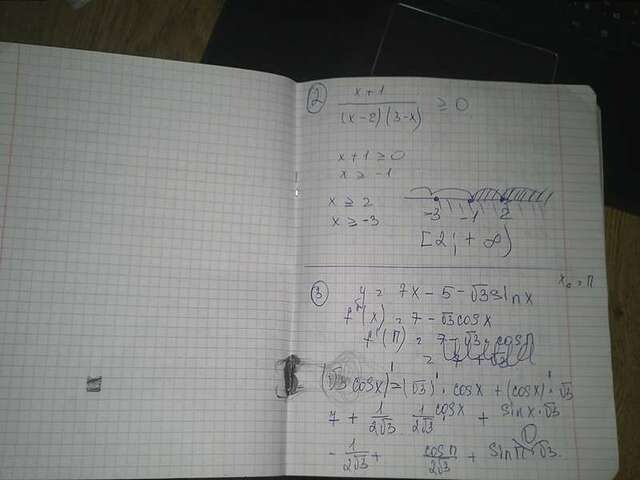 2
x+1
(x-2)(3-x) ≥ 0
x+1 ≥ 0
x ≥ -1
x ≥ 2
x ≥ -3
-3 -1 2
[2; +∞)
x₀ = π
3 y = 7x - 5 - √3 sin x
f'(x) = 7 - √3 cos x
f'(π) = 7 - √3 · cos π
= 7 + √3
(√3 cos x)' = (√3)' · cos x + (cos x)' · √3
7 + 1/2√3 1/2√3 cos x + sin x · √3
0
- 1/2√3 + cos π/2√3 + sin π · √3